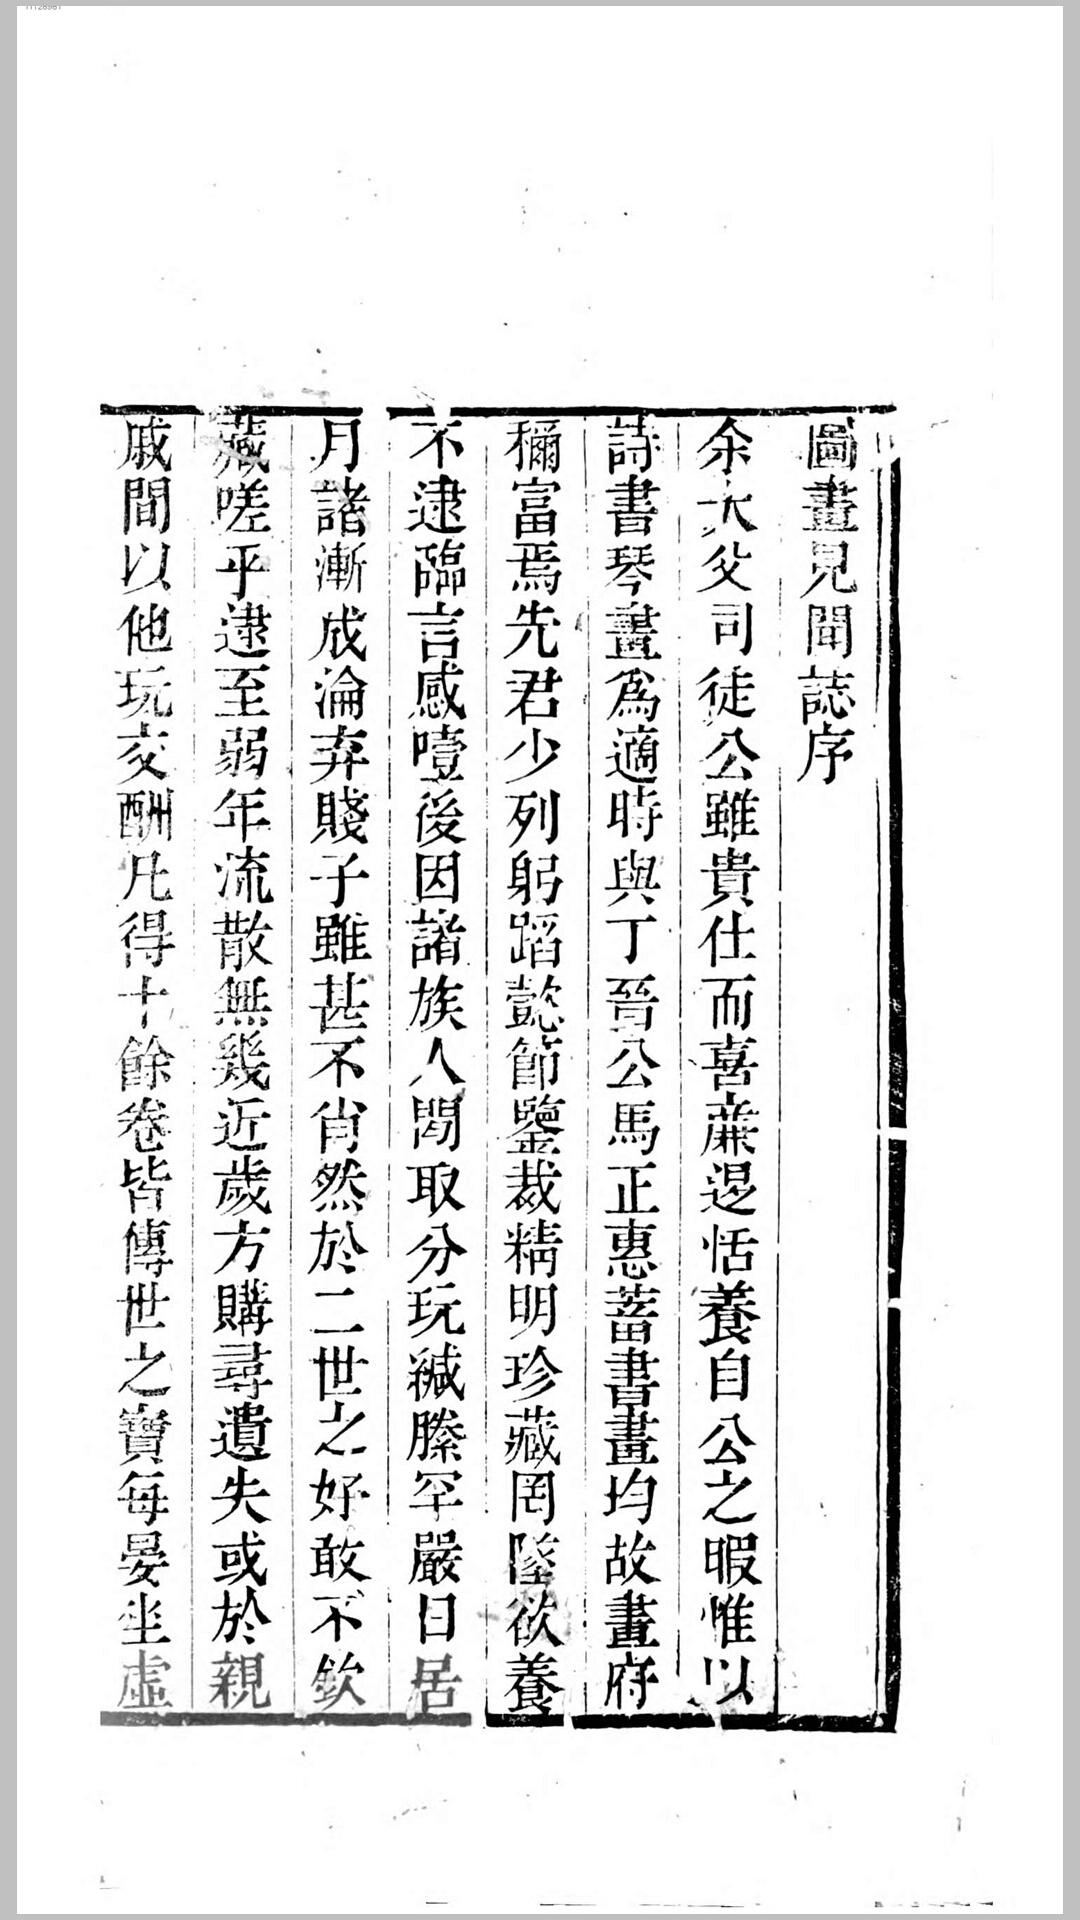 圖畫見聞誌序
余大父司徒公雖貴仕而喜廉退恬養自公之暇惟以
詩書琴畫爲適時與丁晉公馬正惠蓄書畫均故畫府
稱富焉先君少列躬蹈懿節鑒裁精明珍藏罔墜欲養
不逮臨言感噎後因諸族人間取分玩緘縢罕嚴日居
月諸漸成淪弃賤子雖甚不肖然於二世之好敢不欽
藏嗟乎逮至弱年流散無幾近歲方購尋遺失或於親
戚間以他玩交酬凡得十餘卷皆傳世之寶每晏坐虛